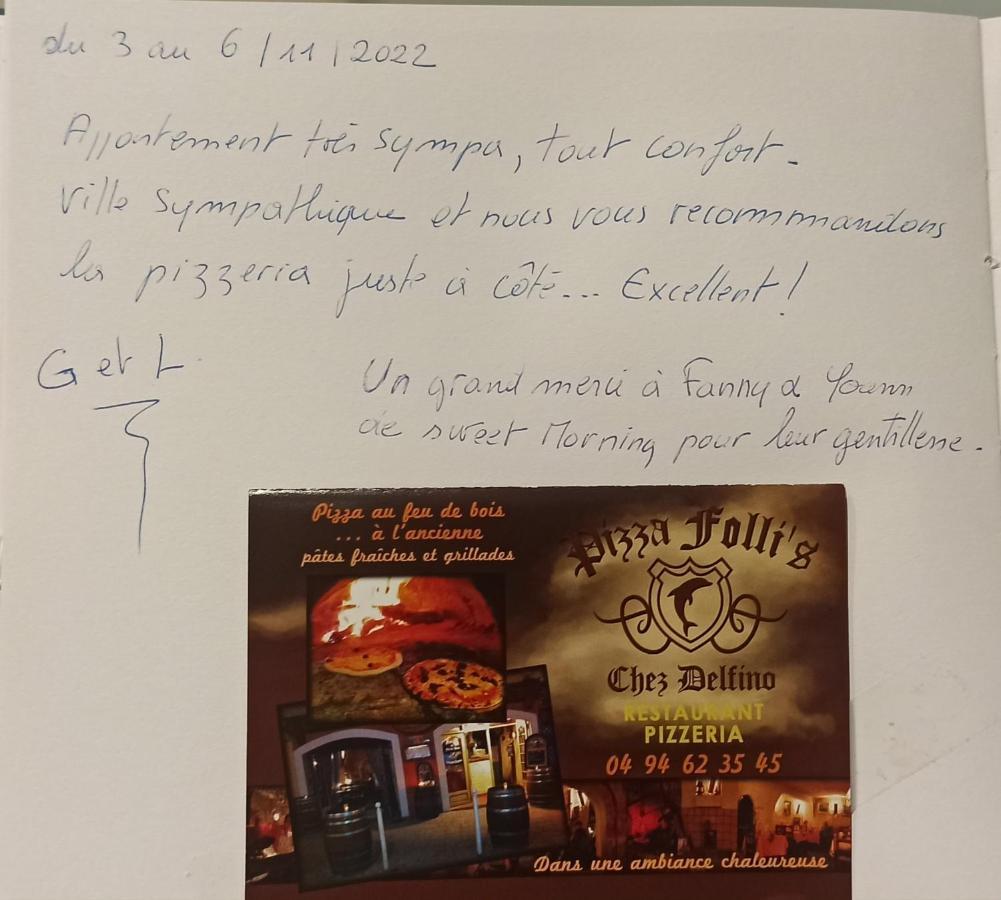 du 3 au 6/11/2022
Appartement très sympa, tout confort.
Ville sympathique et nous vous recommmandons
la pizzeria juste à côté... Excellent !
G et L
Un grand merci à Fanny & Yoann
de sweet Morning pour leur gentillesse.
Pizza au feu de bois
... à l'ancienne
pâtes fraîches et grillades
Pizza Folli's
Chez Delfino
RESTAURANT
PIZZERIA
04 94 62 35 45
Dans une ambiance chaleureuse